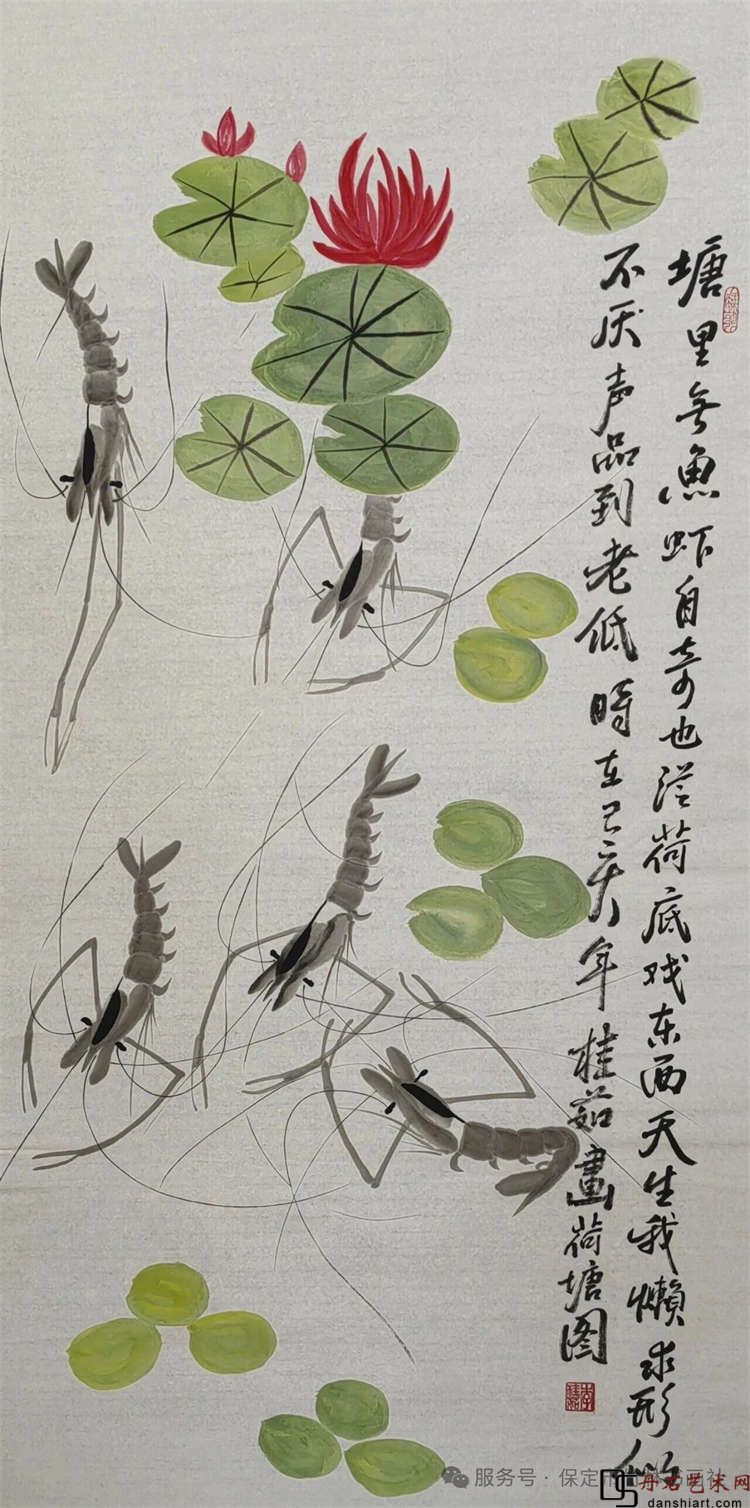 塘里无魚虾自奇也从荷底戏东西天生我懒求形似
不厌声品到老低 時在己亥年 桂茹畫荷塘图
服务号·保定市
书画社
丹若艺术网
danshiart.com